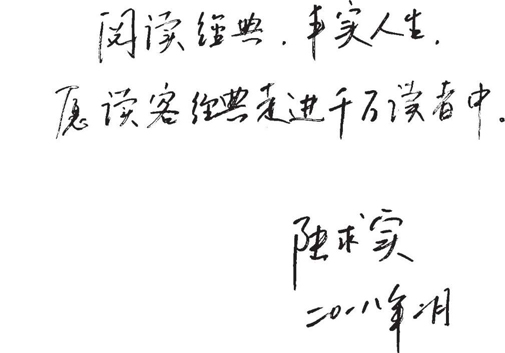 阅读經典，丰实人生，
愿读客经典走进千万读者中。
陆求实
二〇一八年二月